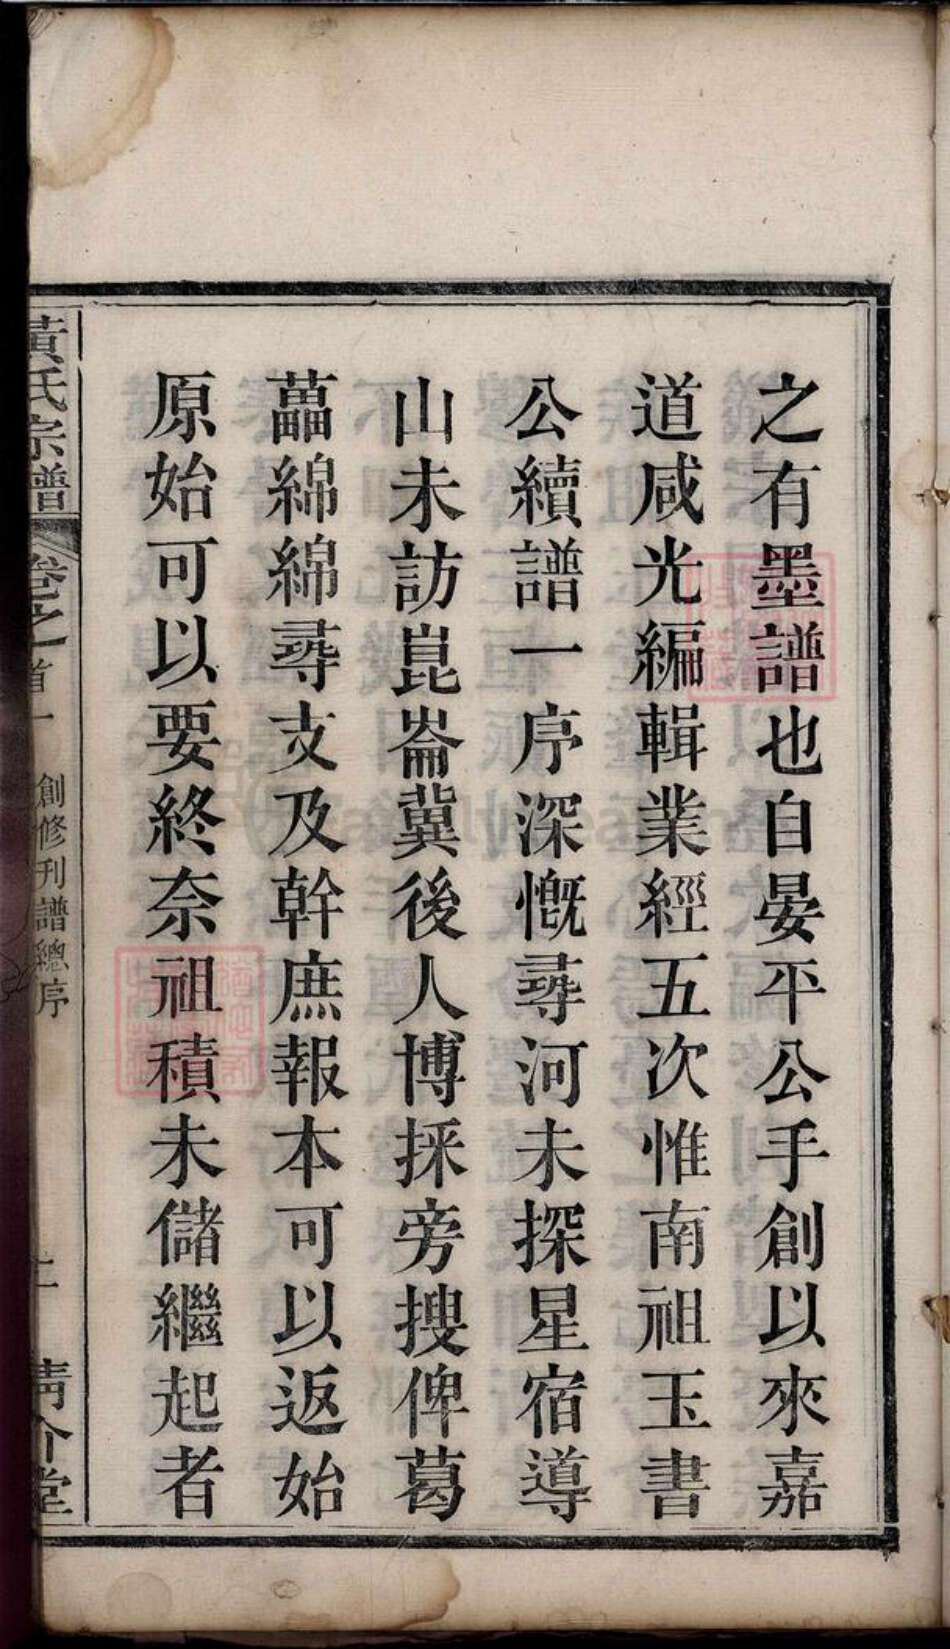 之有墨譜也自晏平公手創以來嘉
道咸光編輯業經五次惟南祖玉書
公續譜一序深慨尋河未探星宿導
山未訪崑崙冀後人博採旁搜俾葛
藟綿綿尋支及幹庶報本可以返始
原始可以要終奈祖積未儲繼起者
黃氏宗譜
卷之首一
創修刊譜總序
清介堂